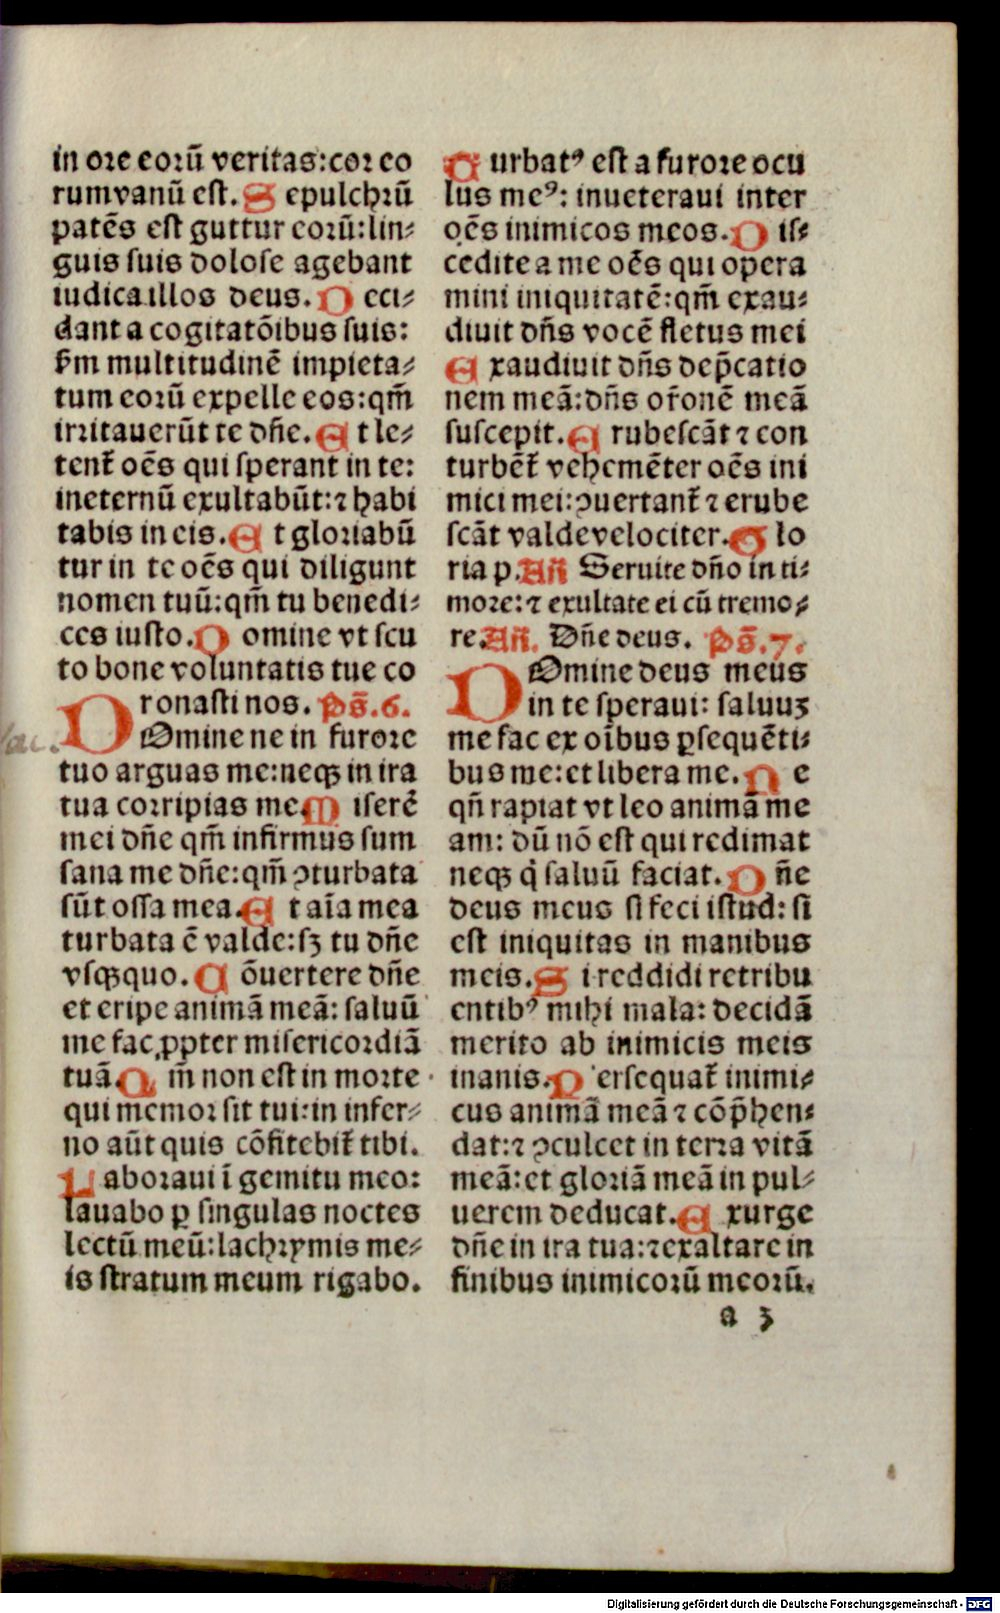 in ore eorū veritas:cor eo
rum vanū est. Sepulchrū
patēs est guttur eorū:lin⸗
guis suis dolose agebant
iudica illos deus. Deci⸗
dant a cogitatōibus suis:
km multitudinē impieta⸗
tum eorū expelle eos:qm̄
irritauerūt te dn̄e. Et le⸗
tent̄ oēs qui sperant in te:
ineternū exultabūt:⁊ habi
tabis in eis. Et gloriabū
tur in te oēs qui diligunt
nomen tuū:qm̄ tu benedi⸗
ces iusto. Domine vt scu
to bone voluntatis tue co
ronasti nos. Ps̄.6.
DOmine ne in furore
tuo arguas me:neqꝫ in ira
tua corripias me. Miserē
mei dn̄e qm̄ infirmus sum
sana me dn̄e:qm̄ ꝯturbata
sūt ossa mea. Et aīa mea
turbata ē valde:sꝫ tu dn̄e
vsqꝫquo. Cōuertere dn̄e
et eripe animā meā: saluū
me fac ꝓpter misericordiā
tuā. Qm̄ non est in morte
qui memor sit tui:in infer⸗
no aūt quis cōfitebit̄ tibi.
Laboraui ī gemitu meo:
lauabo ꝑ singulas noctes
lectū meū:lachrymis me⸗
is stratum meum rigabo.
Turbatꝰ est a furore ocu
lus meꝰ: inueteraui inter
oēs inimicos meos. Dis⸗
cedite a me oēs qui opera
mini iniquitatē:qm̄ exau⸗
diuit dn̄s vocē fletus mei
Exaudiuit dn̄s dep̄catio
nem meā:dn̄s or̄onē meā
suscepit. Erubescāt ⁊ con
turbēt̄ vehemēter oēs ini
mici mei:ꝯuertant̄ ⁊ erube
scāt valde velociter. Glo
ria p. An̄ Seruite dn̄o in ti⸗
more:⁊ exultate ei cū tremo⸗
re. An̄. Dn̄e deus. Ps̄.7.
DOmine deus meus
in te speraui: saluuꝫ
me fac ex oībus ꝑsequēti⸗
bus me:et libera me. Ne
qn̄ rapiat vt leo animā me
am: dū nō est qui redimat
neqꝫ q̇ saluū faciat. Dn̄e
deus meus si feci istud: si
est iniquitas in manibus
meis. Si reddidi retribu
entibꝰ mihi mala: decidā
merito ab inimicis meis
inanis. Persequat̄ inimi⸗
cus animā meā ⁊ cōp̄hen⸗
dat:⁊ ꝯculcet in terra vitā
meā:et gloriā meā in pul⸗
uerem deducat. Exurge
dn̄e in ira tua:⁊exaltare in
finibus inimicorū meorū.
a 3
Digitalisierung gefördert durch die Deutsche Forschungsgemeinschaft - DFG